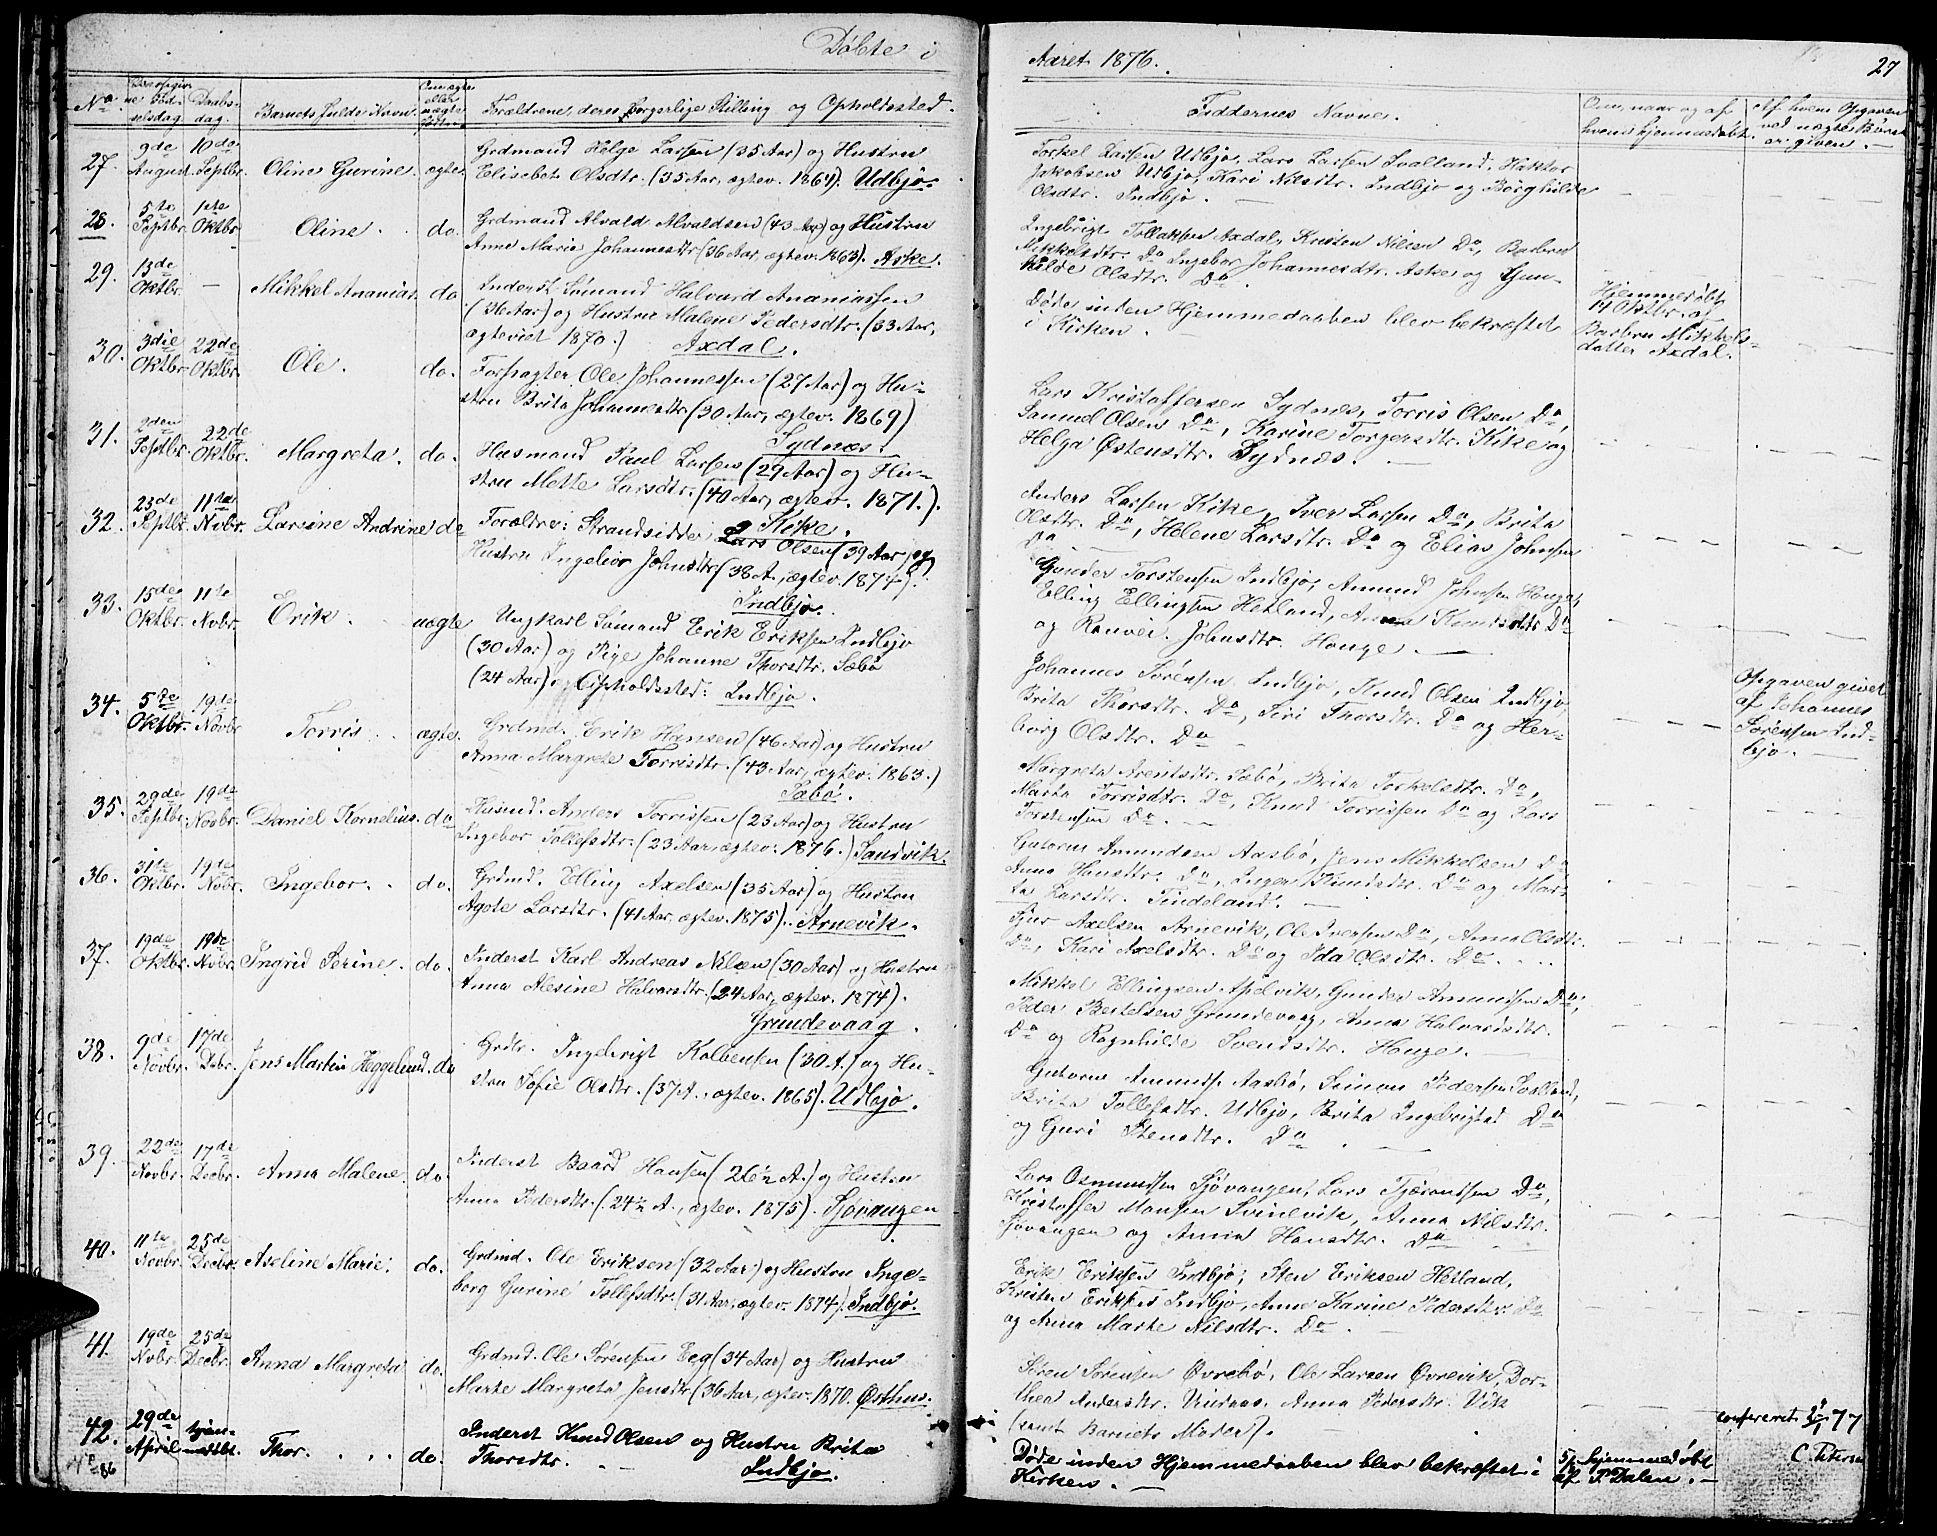 Döbte i
Aaret 1876.
27
No.
Fød-
selsdag
Daabs-
dag.
Barnets fulde Navn.
Forældrene, deres borgerlige Stilling og Opholdssted.
Faddernes Navne.
Om, naar og af
hvem hjemmedøbt.
Af hvem Opgaven
ved uægte Børn
er given.
27. 9de August 10de Septbr. Oline Gurine. ægte.
Grdmand Helge Larsen (35 Aar) og Hustru
Elisabet Olsdtr. (35 Aar, ægtev. 1864). Udbjo.
Torkel Larsen Udbjo, Lars Larsen Svalland, Haktor
Jakobsen Udbjo, Kari Nilsdtr. Indbjo og Borghilde
Olsdtr. Indbjo.
28. 5te Septbr. 1ste Oktbr. Oline. do.
Grdmand Alvald Alvaldsen (43 Aar) og Hustru
Anne Marie Johannesdtr. (36 Aar, ægtev. 1863). Aske.
Ingebrigt Tollaksen Axdal, Kristen Nilsen Do, Barbro
Mikkelsdtr. Do Ingebor Johannesdtr. Aske og Gun-
hilde Olsdtr. Do.
29. 13de Oktbr. — Mikkel Ananias. do.
Inderst Sømand Halvard Ananiassen
(36 Aar) og Hustru Malene Pedersdtr. (33 Aar,
ægteviet 1870.) Axdal.
Døde inden Hjemmedaaben blev bekræftet
i Kirken.
Hjemmedøbt
14 Oktbr. af
Barbru Mikkels-
datter Axdal.
30. 3die Oktbr. 22de Oktbr. Ole. do.
Forpagter Ole Johannessen (27 Aar) og Hu-
stru Brita Johannesdtr. (30 Aar, ægtev. 1869)
Sydnæs.
Lars Kristoffersen Sydnes, Torris Olsen Do,
Samuel Olsen Do, Karine Torgersdtr. Kike og
Helga Østensdtr. Sydnæs.
31. 2den Septbr. 22de Oktbr. Margreta. do.
Husmand Paul Larsen (29 Aar) og Hu-
stru Mette Larsdtr. (40 Aar, ægtev. 1871.).
Kike.
Anders Larsen Kike, Iver Larsen Do, Brita
Olsdtr. Do, Helene Larsdtr. Do og Elias Johnsen
Do
32. 23de Septbr. 11te Novbr. Larsine Andrine do
Forældre: Strandsidder Lars Olsen (39 Aar) og
Hustru Ingebor Johnsdtr. (38 A., ægtev. 1874).
Indbjo.
Gunder Torstensen Indbjo, Amund Johnsen Houge,
Elling Ellingsen Hetland, Anna Knudsdtr. Do
og Ranvei Johnsdtr. Houge.
33. 15de Oktbr. 11te Novbr. Erik. uægte
Ungkarl Sømand Erik Eriksen Indbjo
(30 Aar) og Pige Johanne Thorsdtr. Sæbø
(24 Aar). Opholdssted: Indbjo.
Johannes Sørensen Indbjo, Knud Olsen Indbjo,
Brita Thorsdtr. Do, Siri Thorsdtr. Do og Her-
borg Olsdtr. Do
Opgaven givet
af Johannes
Sørensen Ind-
bjo.
34. 5te Oktbr. 19de Novbr Torris. ægte.
Grdmd. Erik Hansen (46 Aar) og Hustru
Anna Margrete Torrisdtr. (43 Aar, ægtev. 1863.)
Sæbø.
Margreta Arentsdtr. Sæbø, Brita Torkelsdtr. Do,
Marta Torrisdtr. Do, Knud Torrissen Do og Lars
Torstensen Do.
35. 29de Septbr. 19de Novbr. Daniel Kornelius. do
Husmd. Anders Torrissen (23 Aar) og Hustru
Ingebor Tollefsdtr. (23 Aar, ægtev. 1876.) Sandvik.
Guttorm Amundsen Aasbø, Jens Mikkelsen Do
Anna Hansdtr. Do, Inger Knudsdtr. Do og Mar-
ta Larsdtr. Tindeland.
36. 31te Oktbr. 19de Novbr. Ingebor. do.
Grdmd. Elling Axelsen (35 Aar) og Hustru
Agote Larsdtr. (41 Aar, ægtev. 1875). Arnevik.
Sjur Axelsen Arnevik, Ole Iversen Do, Anna Olsdtr.
Do, Kari Axelsdtr. Do og Ida Olsdtr. Do.
37. 19de Oktbr. 19de Novbr. Ingrid Serine. do.
Inderst Karl Andreas Nilsen (30 Aar) og Hustru
Anna Alesine Halvorsdtr. (24 Aar, ægtev. 1874).
Grundevaag.
Mikkel Ellingsen Apelvik, Gunder Amundsen Do,
Peder Bertelsen Grundevaag, Anna Halvardsdtr.
Do og Ragnhilde Svendsdtr. Houge.
38. 9de Novbr. 17de Debr. Jens Martin Heggelund. do
Grdbr. Ingebrigt Kolbensen (30 A.) og Hu-
stru Sofie Olsdtr. (37 A., ægtev. 1865). Udbjo.
Gutorm Amunds. Aasbø, Simon Pedersen Svalland,
Brita Tollefsdtr. Udbjo, Brita Ingebrigtsd. Do
og Guri Stensdtr. Do.
39. 22de Novbr. 17de Decbr. Anna Malene. do.
Inderst Baard Hansen (26½ A.) og Hustru
Anna Pedersdtr. (24½ A., ægtev. 1875). Sjøvangen
Lars Osmundsen Sjøvangen, Lars Tjærandsen Do,
Kristoffer Monsen Svinevik, Anna Nilsdtr.
Sjøvangen og Anna Hansdtr. Do
40. 11te Novbr. 25de Decbr. Aseline Marie. do.
Grdmd. Ole Eriksen (32 Aar) og Hustru Inge-
borg Gurine Tollefsdtr. (31 Aar, ægtev. 1874). Indbjo.
Erik Eriksen Indbjo, Sten Eriksen Hetland,
Kristen Eriksen Indbjo, Anne Karine Pedersdtr. Do
og Anna Marte Nilsdtr. Do.
41. 19de Nvbr. 25de Decbr. Anna Margreta do.
Grdmd. Ole Sørensen Eeg (34 Aar) og Hustru
Marte Margreta Jensdtr. (36 Aar, ægtev. 1870. Østhus.
Søren Sørensen Øvrebø, Ole Larsen Øvrevik, Dor-
thea Andersdtr. Anna Pedersdtr. Vik
(samt Barnets Moder).
42. 29de April hjem-medøbt. Thor. do.
Inderst Knud Olsen og Hustru Brita
Thorsdtr. Indbjo.
Døde inden Hjemmedaaben blev bekræftet i
Kirken.
5/5 hjemmedøbt
af P. Dalen.
confereret 77
C. Petersen